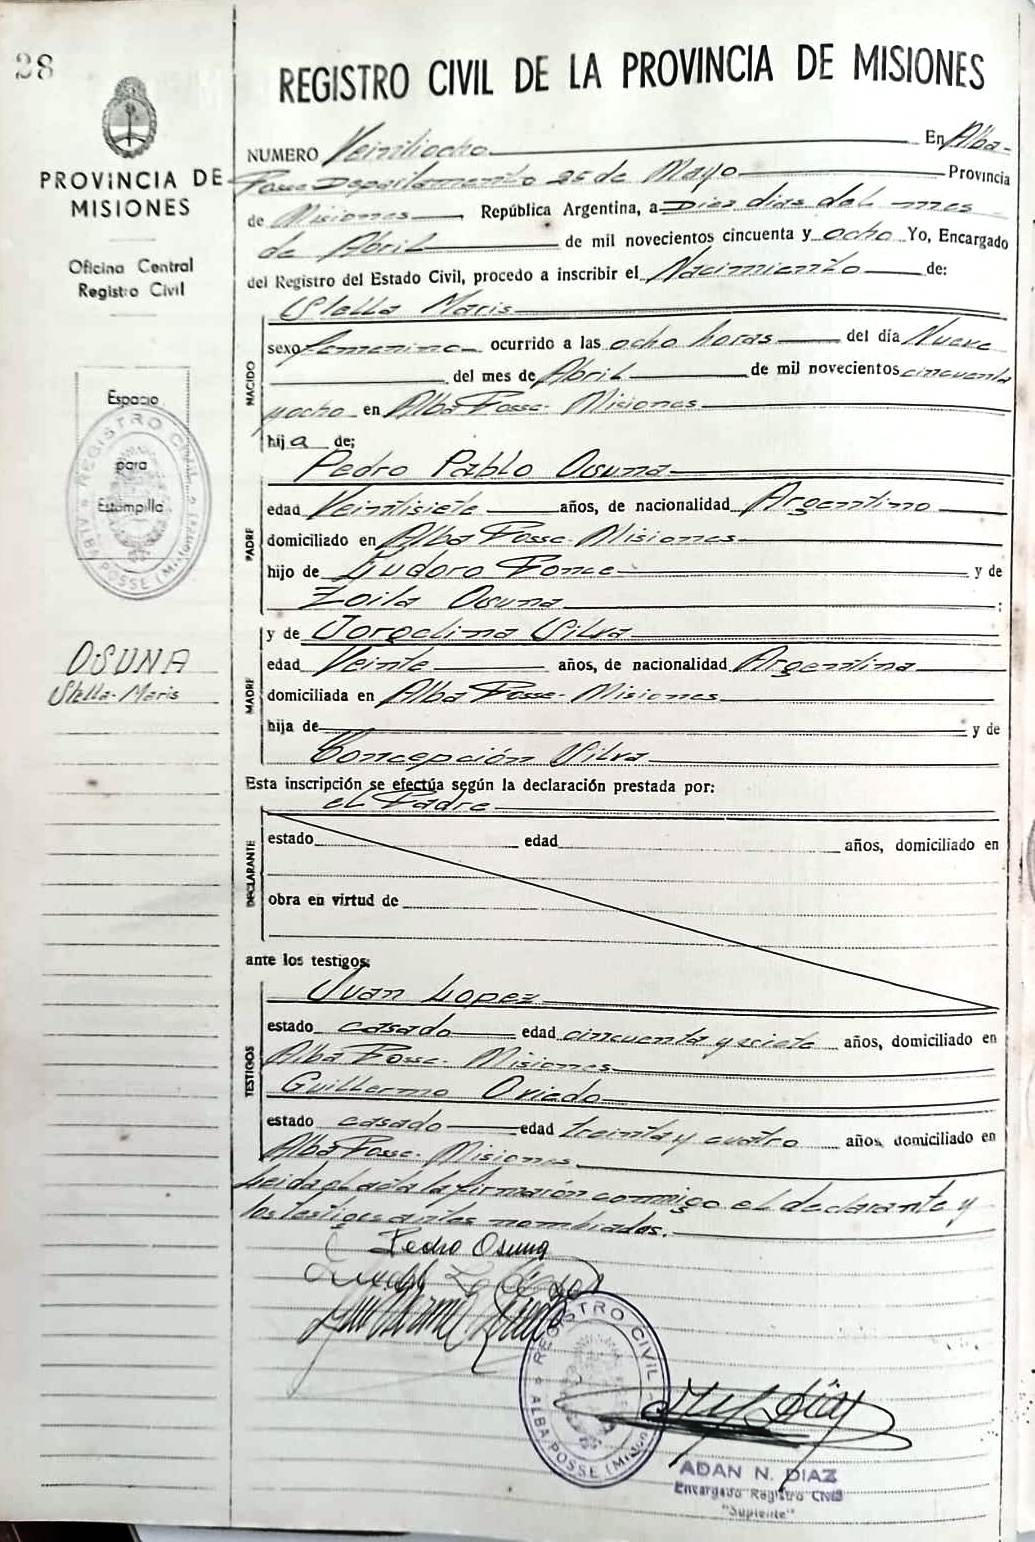 28
PROVINCIA DE
MISIONES
Oficina Central
Registro Civil
Espacio
para
Estampilla
REGISTRO CIVIL
ALBA POSSE (Misiones)
OSUNA
Stella-Maris
REGISTRO CIVIL DE LA PROVINCIA DE MISIONES
NUMERO Veintiocho En Alba-
Posse Departamento 25 de Mayo Provincia
de Misiones, República Argentina, a Diez dias del mes
de Abril de mil novecientos cincuenta y ocho Yo, Encargado
del Registro del Estado Civil, procedo a inscribir el Nacimiento de:
Stella Maris
NACIDO
sexo femenino ocurrido a las ocho horas del día Nueve
del mes de Abril de mil novecientos cincuenta
y ocho en Alba Posse- Misiones
hija de;
Pedro Pablo Osuna
PADRE
edad Veintisiete años, de nacionalidad Argentino
domiciliado en Alba Posse- Misiones
hijo de Ponce y de
Zoila Osuna :
y de Jorgelina Silva
MADRE
edad Veinte años, de nacionalidad Argentina
domiciliada en Alba Posse- Misiones
hija de y de
Concepción Silva
Esta inscripción se efectúa según la declaración prestada por:
el Padre
DECLARANTE
estado edad años, domiciliado en
obra en virtud de
ante los testigos:
Juan Lopez
TESTIGOS
estado casado edad cincuenta y siete años, domiciliado en
Alba Posse- Misiones
Guillermo Oviedo
estado casado edad treinta y cuatro años, domiciliado en
Alba Posse- Misiones.
Leida el acta la firmarón conmigo el declarante y
los testigos antes nombrados.
Pedro Osuna
REGISTRO CIVIL
ALBA POSSE (Misiones)
ADAN N. DIAZ
Encargado Registro Civil
"Suplente"